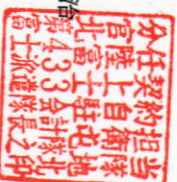 分任契約担当
官陸上自衛隊
北富士駐屯地
第433会計隊北富
士派遣隊長之印